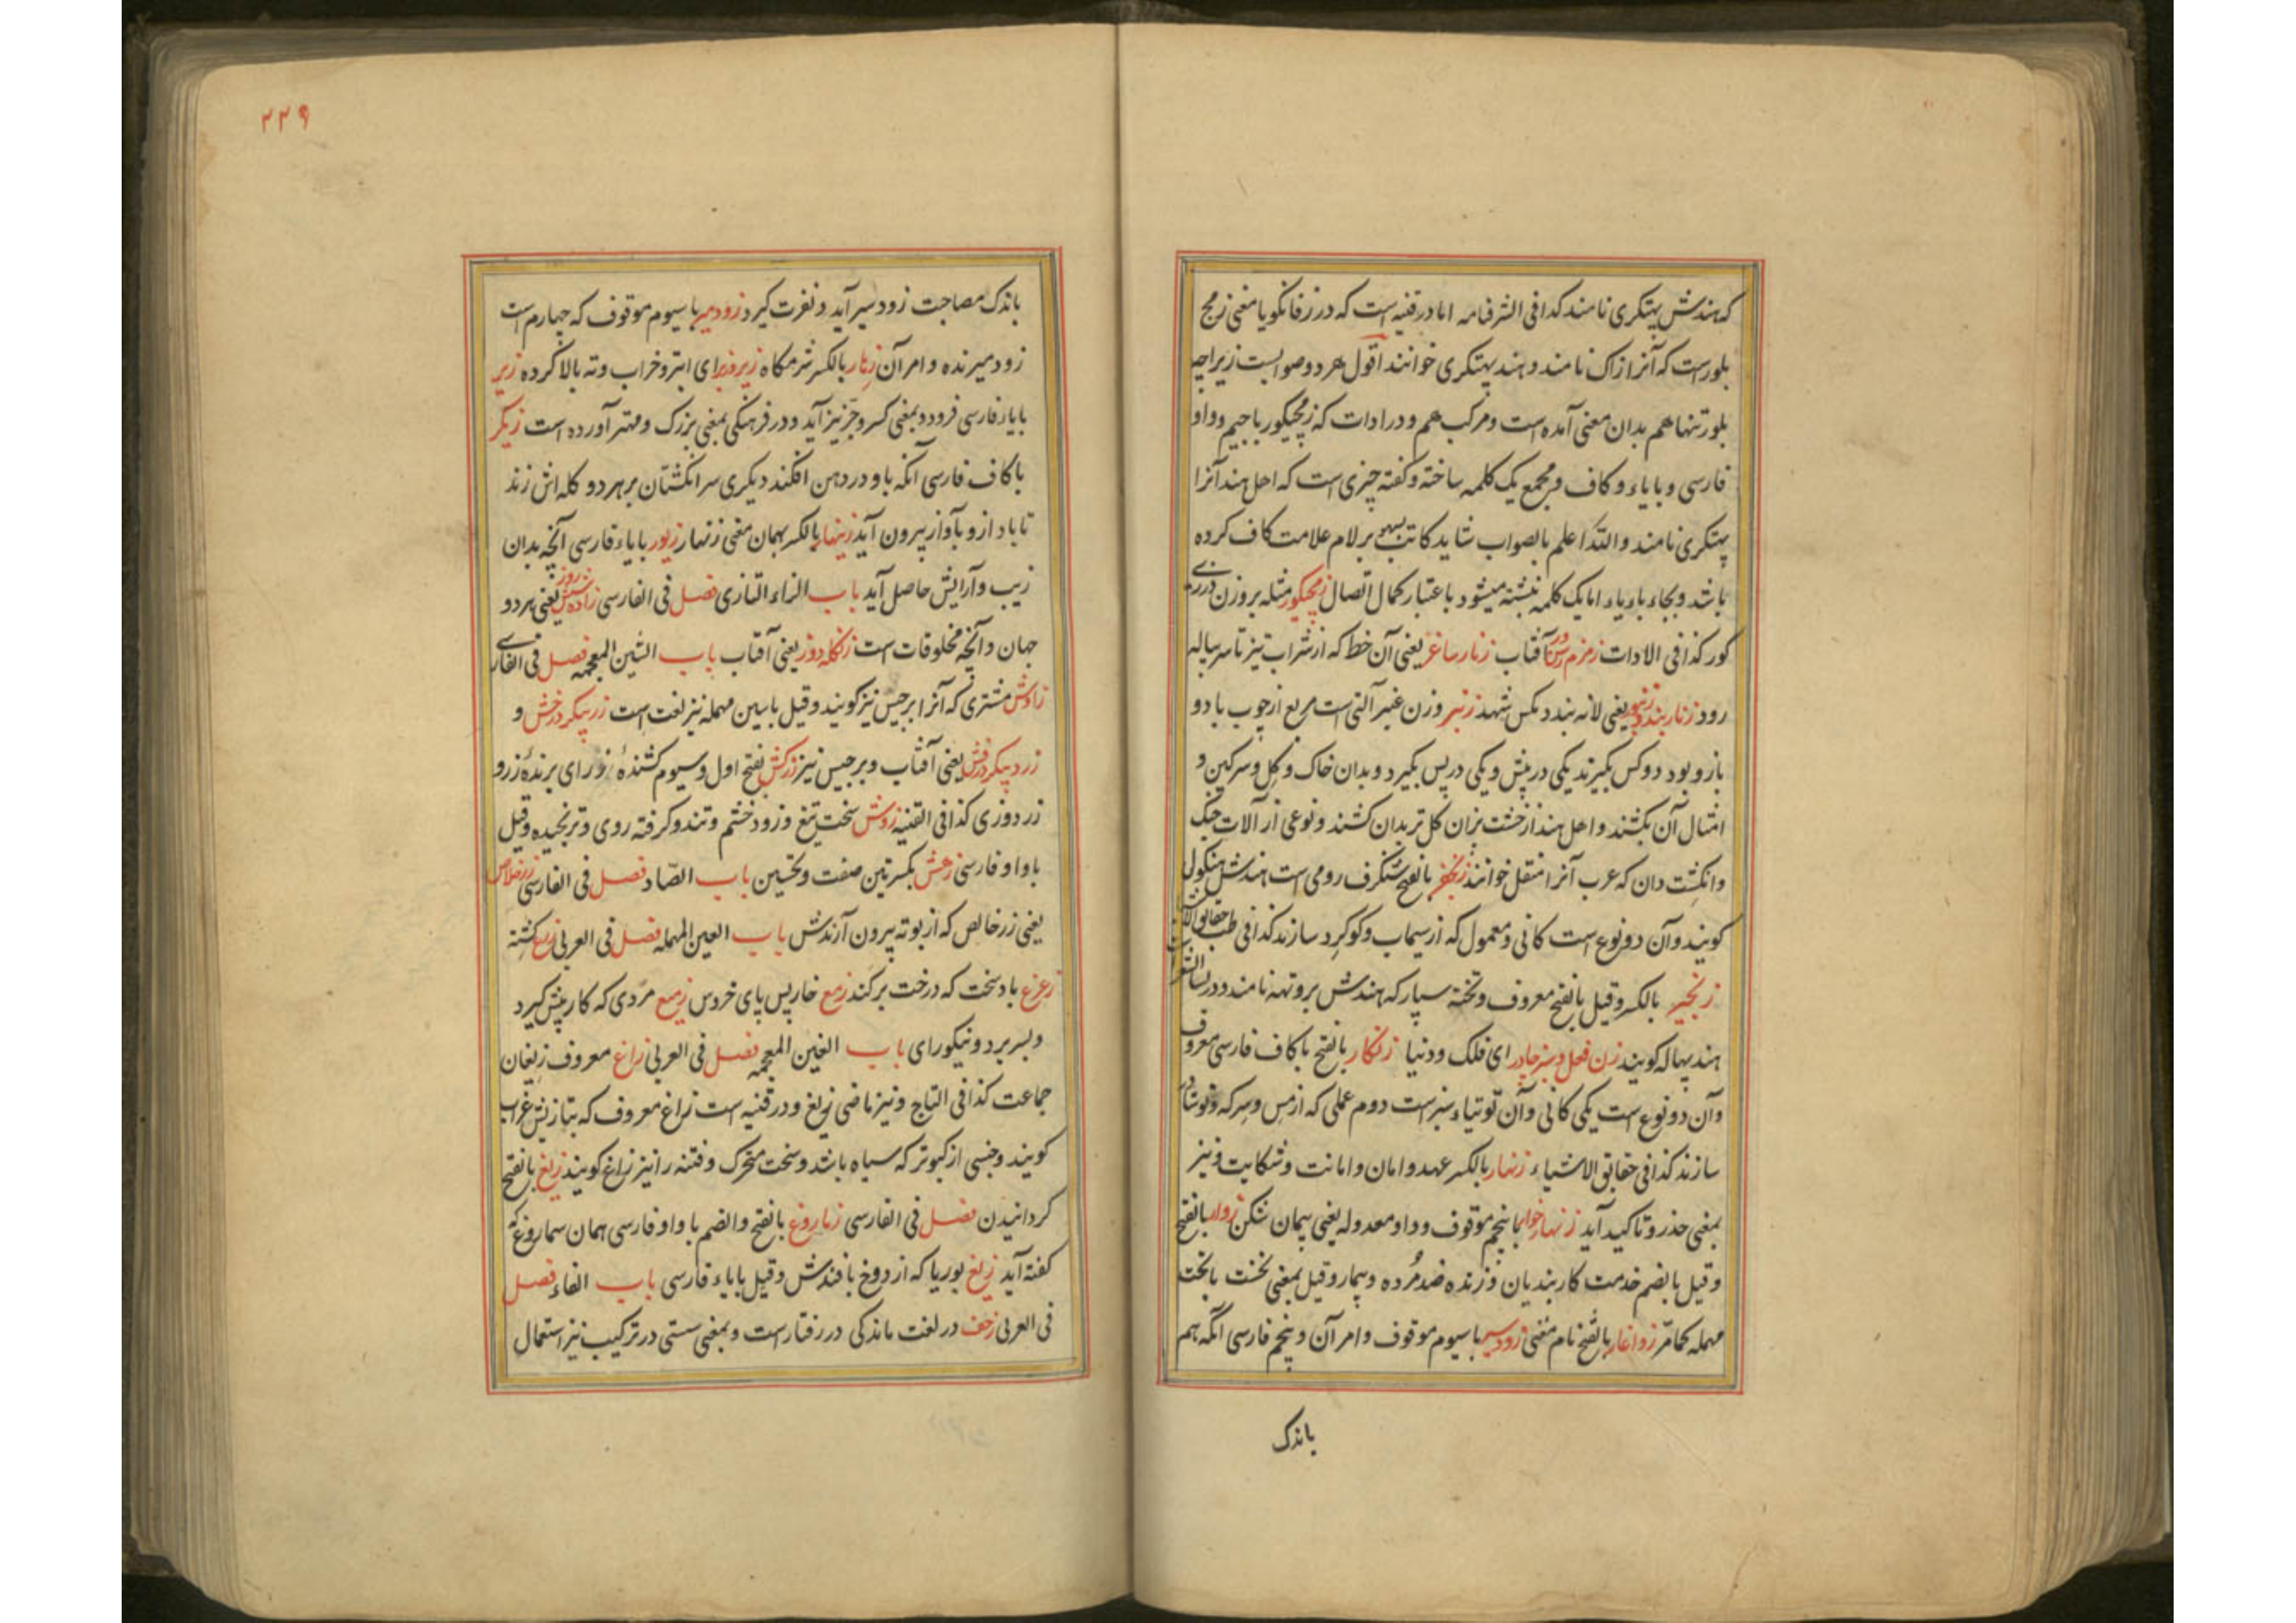 که هندش پهتکری نامند کذا فی الشرفنامه اما در قنیه است که در زفانگویا معنی زمج
بلور است که آنرا زاک نامند و هند پهتکری خوانند اقول هر دو صوابست زیراچه
بلور تنها هم بدان معنی آمده است و مرکب هم و در ادات که زمجیکور با جیم و واو
فارسی و بایاء و کاف و مجمع یک کلمه ساخته و گفته چیزی است که اهل هند آنرا
پهتکری نامند والله اعلم بالصواب شاید کاتب بسهو بر لام علامت کاف کرده
باشد و بجاء باء یاء اما یک کلمه نبشته میشود باعتبار کمال اتصال زمجیکور مثله بروزن
کور کذا فی الادات زمزم آفتاب زنار ساغر یعنی آن خط که از شراب تیز تا سر پیاله
رود زنار بند زنبور یعنی لانه بندد مکس شهد زنبر وزن عنبر آلتی است مربع از چوب با دو
بازو بود دو کس بگیرند یکی در پیش و یکی در پس بگیرد و بدان خاک و گل و سرکین و
امثال آن بکشند و اهل هند از خشت پزان گل تر بدان کشند و نوعی از آلات جنک
وانگشت دان که عرب آنرا منقل خوانند زنجفر بالفتح شنگرف رومی است هندش هنکول
کویند و آن دو نوع است کانی و معمول که از سیماب و کوکرد سازند کذا فی طب حقایق الاشیا
زنجیر بالکسر و قیل بالفتح معروف و تخته سپار که هندش بروتهه نامند و در لسان الشعرا
هند پهاله کویند زن فعل و سبز چادر ای فلک و دنیا زنکار بالفتح با کاف فارسی معروف
و آن دو نوع است یکی کانی و آن توتیاء سبز است دوم عملی که از مس و سرکه و نوشادر
سازند کذا فی حقایق الاشیاء زنهار بالکسر عهد و امان و امانت و شکایت و نیز
بمعنی حذر و تاکید آید زنهار خوار با پنجم موقوف و واو معدوله یعنی پیمان شکن زوار بالفتح
و قیل بالضم خدمت کار بندیان و زنده ضد مرده و بیمار و قیل بمعنی نخست با تحت
مهمله کمامر زواغار بالفتح نام مغنی زودسیر با سیوم موقوف و امر آن و پنجم فارسی انکه هم
باندک
۲۲۹
باندک مصاحبت زود سیر آید و نفرت گیرد زودمیر با سیوم موقوف که چهارم است
زود میرنده و امر آن زهار بالکسر شرمکاه زیر و زبر ای ابتر و خراب و ته بالا کرده زیر
بایاء فارسی فرود و بمعنی کسر و جز نیز آید و در فرهنکی بمعنی بزرک و مهتر آورده است زیکر
با کاف فارسی آنکه باد در دهن افکند دیکری سر انکشتان بر هر دو کله اش زند
تا باد از و باواز بیرون آید زینهار بالکسر بهمان معنی زنهار زیور بایاء فارسی آنچه بدان
زیب و آرایش حاصل آید باب الزاء التازی فصل فی الفارسی زاده شش روز یعنی هر دو
جهان و آنچه مخلوقات است زنکله روز یعنی آفتاب باب الشین المعجمه فصل فی الفارسی
زاوش مشتری که آنرا برجیس نیز کویند و قیل با سین مهمله نیز لغت است زر پیکر درخش و
زرد پیکر درفش یعنی آفتاب و برجیس نیز زرکش بفتح اول و سیوم کشنده زر ای برنده زر و
زردوزی کذا فی القنیه زوش سخت تیغ و زود خشم و تند و کرفته روی و ترنجیده و قیل
با واو فارسی زعش بکسرتین صفت و تحسین باب الصاد فصل فی الفارسی زر خلاص
یعنی زر خالص که از بوته بیرون آرندش باب العین المهمله فصل فی العربی زرع کشته
زعزع باد سخت که درخت برکند زمع خار پس پای خروس زمیع مردی که کار پیش گیرد
و بسر برد و نیکو رای باب الغین المعجمه فصل فی العربی زاغ معروف زیغان
جماعت کذا فی التاج و نیز ماضی زیغ و در قنیه است زاغ معروف که بتازیش غراب
کویند و جنسی از کبوتر که سیاه باشد و سخت متحرک و فتنه را نیز زاغ کویند زیغ بالفتح
کردانیدن فصل فی الفارسی زماروغ بالفتح والضم با واو فارسی همان سماروغ که
کفته آید زیغ بوریا که از دوخ بافندش و قیل بایاء فارسی باب الفاء فصل
فی العربی زحف در لغت ماندکی در رفتار است و بمعنی سستی در ترکیب نیز استعمال